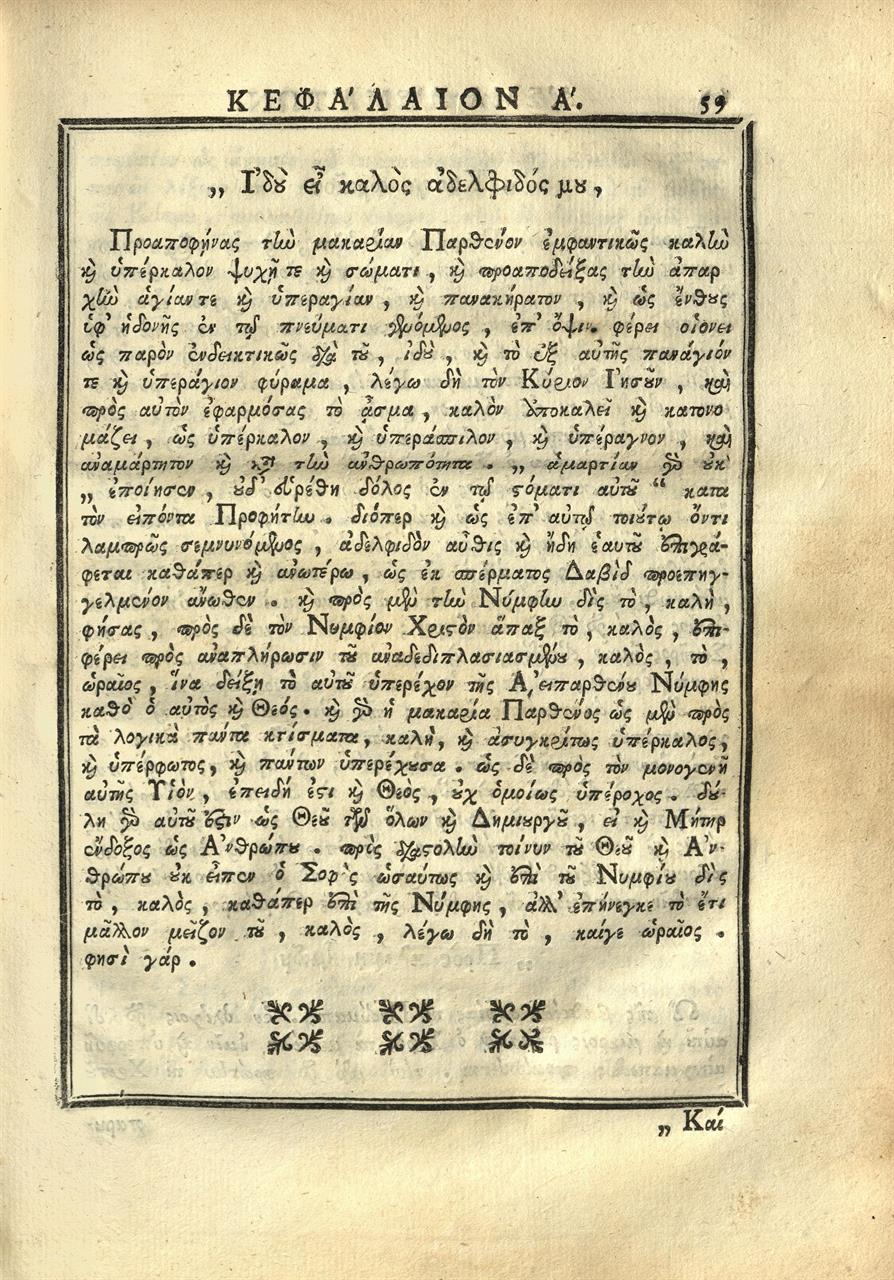 ΚΕΦΑ'ΛΑΙΟΝ Α'. 59
„ Ἰδοὺ εἶ καλὸς ἀδελφιδός μου,
Προαποφήνας τὴν μακαρίαν Παρθένον ἐμφαντικῶς καλὴν
καὶ ὑπέρκαλον ψυχῇ τε καὶ σώματι, καὶ προαποδείξας τὴν ἀπαρ
χὴν ἁγίαν τε καὶ ὑπεραγίαν, καὶ πανακήρατον, καὶ ὡς ἔνθους
ὑφ' ἡδονῆς ἐν τῷ πνεύματι γενόμενος, ἐπ' ὄψιν φέρει οἱονεὶ
ὡς παρὸν ἐνδεικτικῶς διὰ τοῦ, ἰδοὺ, καὶ τὸ ἐξ αὐτῆς πανάγιόν
τε καὶ ὑπεράγιον φύραμα, λέγω δὴ τὸν Κύριον Ἰησοῦν, καὶ
πρὸς αὐτὸν ἐφαρμόσας τὸ ᾆσμα, καλὸν ἀποκαλεῖ καὶ κατονο
μάζει, ὡς ὑπέρκαλον, καὶ ὑπεράσπιλον, καὶ ὑπέραγνον, καὶ
ἀναμάρτητον καὶ κατὰ τὴν ἀνθρωπότητα. „ ἁμαρτίαν γὰρ οὐκ
„ ἐποίησεν, οὐδ' εὑρέθη δόλος ἐν τῷ στόματι αὐτοῦ “ κατὰ
τὸν εἰπόντα Προφήτην. διόπερ καὶ ὡς ἐπ' αὐτῷ τοιούτῳ ὄντι
λαμπρῶς σεμνυνόμενος, ἀδελφιδὸν αὖθις καὶ ἤδη ἑαυτοῦ ἐπιγρά-
φεται καθάπερ καὶ ἀνωτέρω, ὡς ἐκ σπέρματος Δαβὶδ προεπηγ-
γελμένον ἄνωθεν. καὶ πρὸς μὲν τὴν Νύμφην δὶς τὸ, καλὴ,
φήσας, πρὸς δὲ τὸν Νυμφίον Χριστὸν ἅπαξ τὸ, καλὸς, ἐπι-
φέρει πρὸς ἀναπλήρωσιν τοῦ ἀναδεδιπλασιασμένου, καλὸς, τὸ,
ὡραῖος, ἵνα δείξῃ τὸ αὐτοῦ ὑπερέχον τῆς Ἀειπαρθένου Νύμφης
καθὸ ὁ αὐτὸς καὶ Θεός. καὶ γὰρ ἡ μακαρία Παρθένος ὡς μὲν πρὸς
τὰ λογικὰ πάντα κτίσματα, καλὴ, καὶ ἀσυγκρίτως ὑπέρκαλος,
καὶ ὑπέρφωτος, καὶ πάντων ὑπερέχουσα. ὡς δὲ πρὸς τὸν μονογενῆ
αὐτῆς Υἱὸν, ἐπειδή ἐστι καὶ Θεὸς, οὐχ ὁμοίως ὑπέροχος. δού-
λη γὰρ αὐτοῦ ἐστιν ὡς Θεοῦ τῶν ὅλων καὶ Δημιουργοῦ, εἰ καὶ Μήτηρ
ἔνδοξος ὡς Ἀνθρώπου. πρὸς διαστολὴν τοίνυν τοῦ Θεοῦ καὶ Ἀν-
θρώπου οὐκ εἶπεν ὁ Σοφὸς ὡσαύτως καὶ ἐπὶ τοῦ Νυμφίου δὶς
τὸ, καλὸς, καθάπερ ἐπὶ τῆς Νύμφης, ἀλλ' ἐπήνεγκε τὸ ἔτι
μᾶλλον μεῖζον τοῦ, καλὸς, λέγω δὴ τὸ, καίγε ὡραῖος.
φησὶ γάρ.
„ Καί